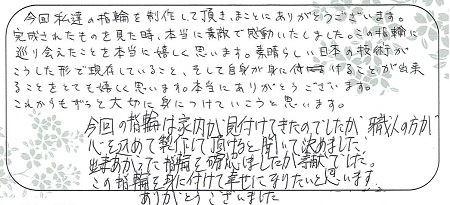 今回私達の指輪を制作して頂き、まことにありがとうございます。
完成されたものを見た時、本当に素敵で感動いたしました。この指輪に
巡り会えたことを本当に嬉しく思います。素晴らしい日本の技術が
こうした形で現存していること、そして自身が身に付けることが出来
ることをとても嬉しく思います。本当にありがとうございます。
これからもずっと大切に身につけていこうと思います。
今回の指輪は家内が見付けてきたのでしたが 職人の方が
心を込めて製作して頂けると聞いて決めました。
出来あがった指輪を 素敵でした。
この指輪を身に付けて幸せになりたいと思います。
ありがとうございました